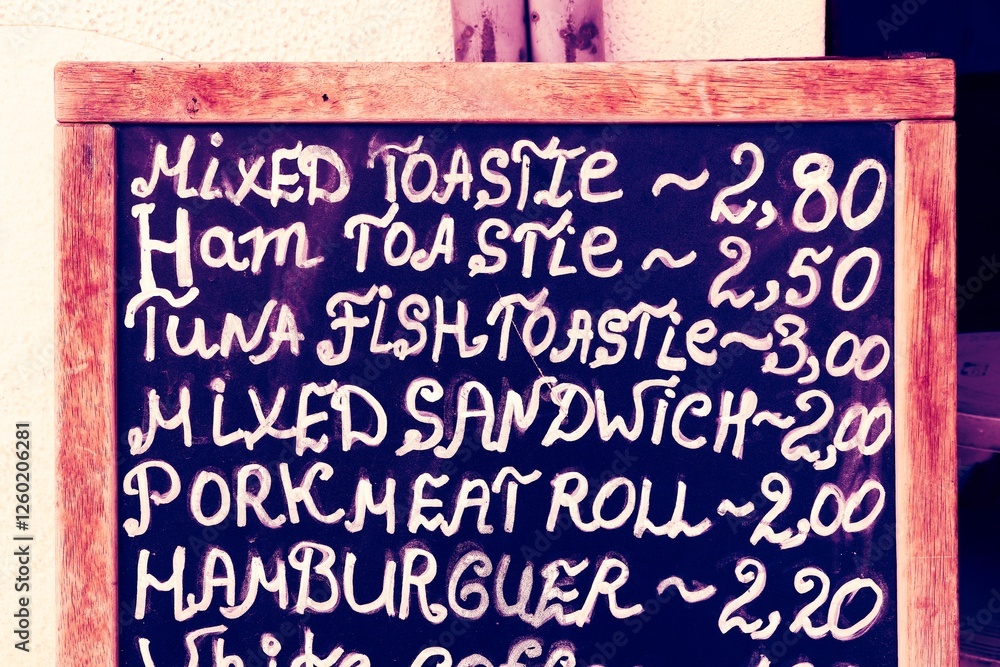 MiXED TOASTIE ~ 2,80
Ham TOASTIE ~ 2,50
TUNA FiSH TOASTIE ~ 3,00
MiXED SANDWiCH ~ 2,00
PORK MEAT ROLL ~ 2,00
HAMBURGUER ~ 2,20
White coffee
Adobe Stock | #1260206281
Adobe Stock